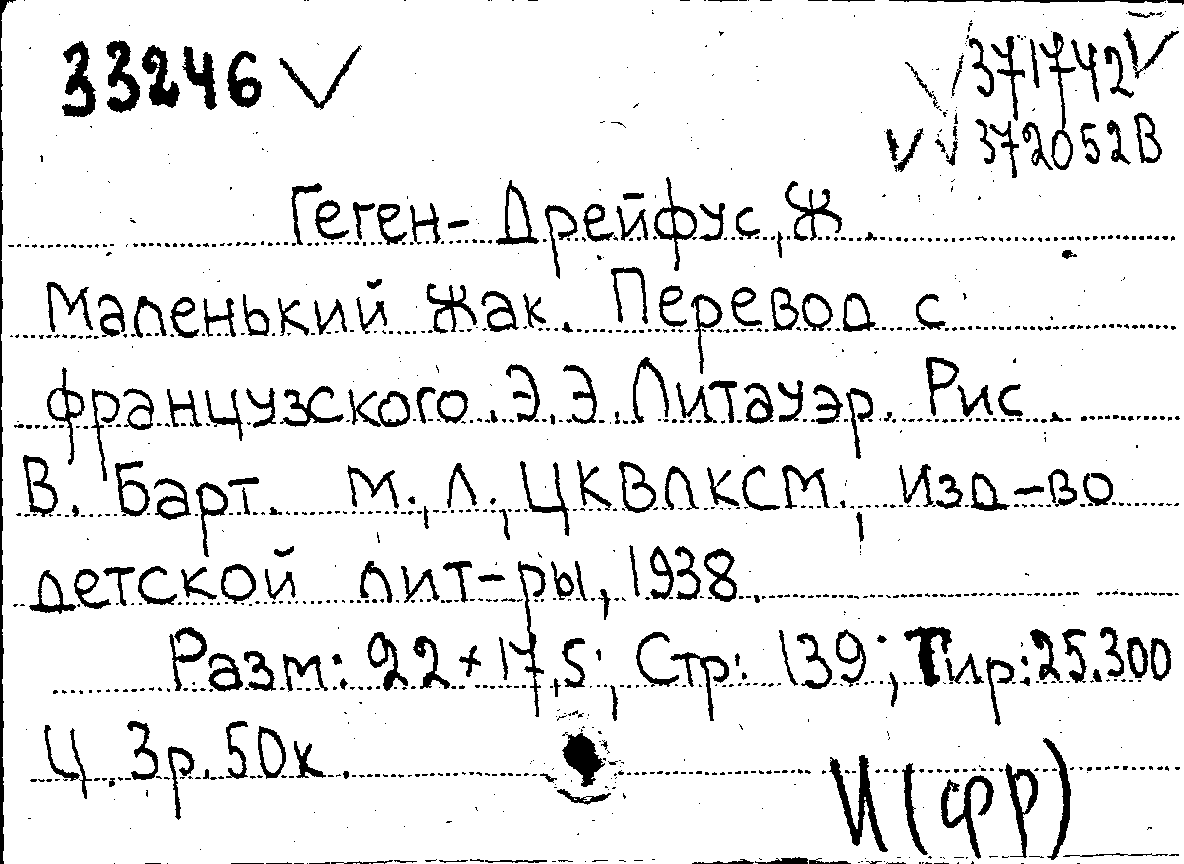 33246 ✓
✓ 371742 ✓
✓ ✓ 372052В
Геген-Дрейфус, Ж.
Маленький Жак. Перевод с
французского. Э.Э.Литауэр. Рис.
В. Барт. М., Л., ЦКВЛКСМ., Изд-во
детской лит-ры, 1938.
Разм: 22×17,5; Стр: 139; Тир: 25.300
Ц. 3р. 50к.
И(фр)